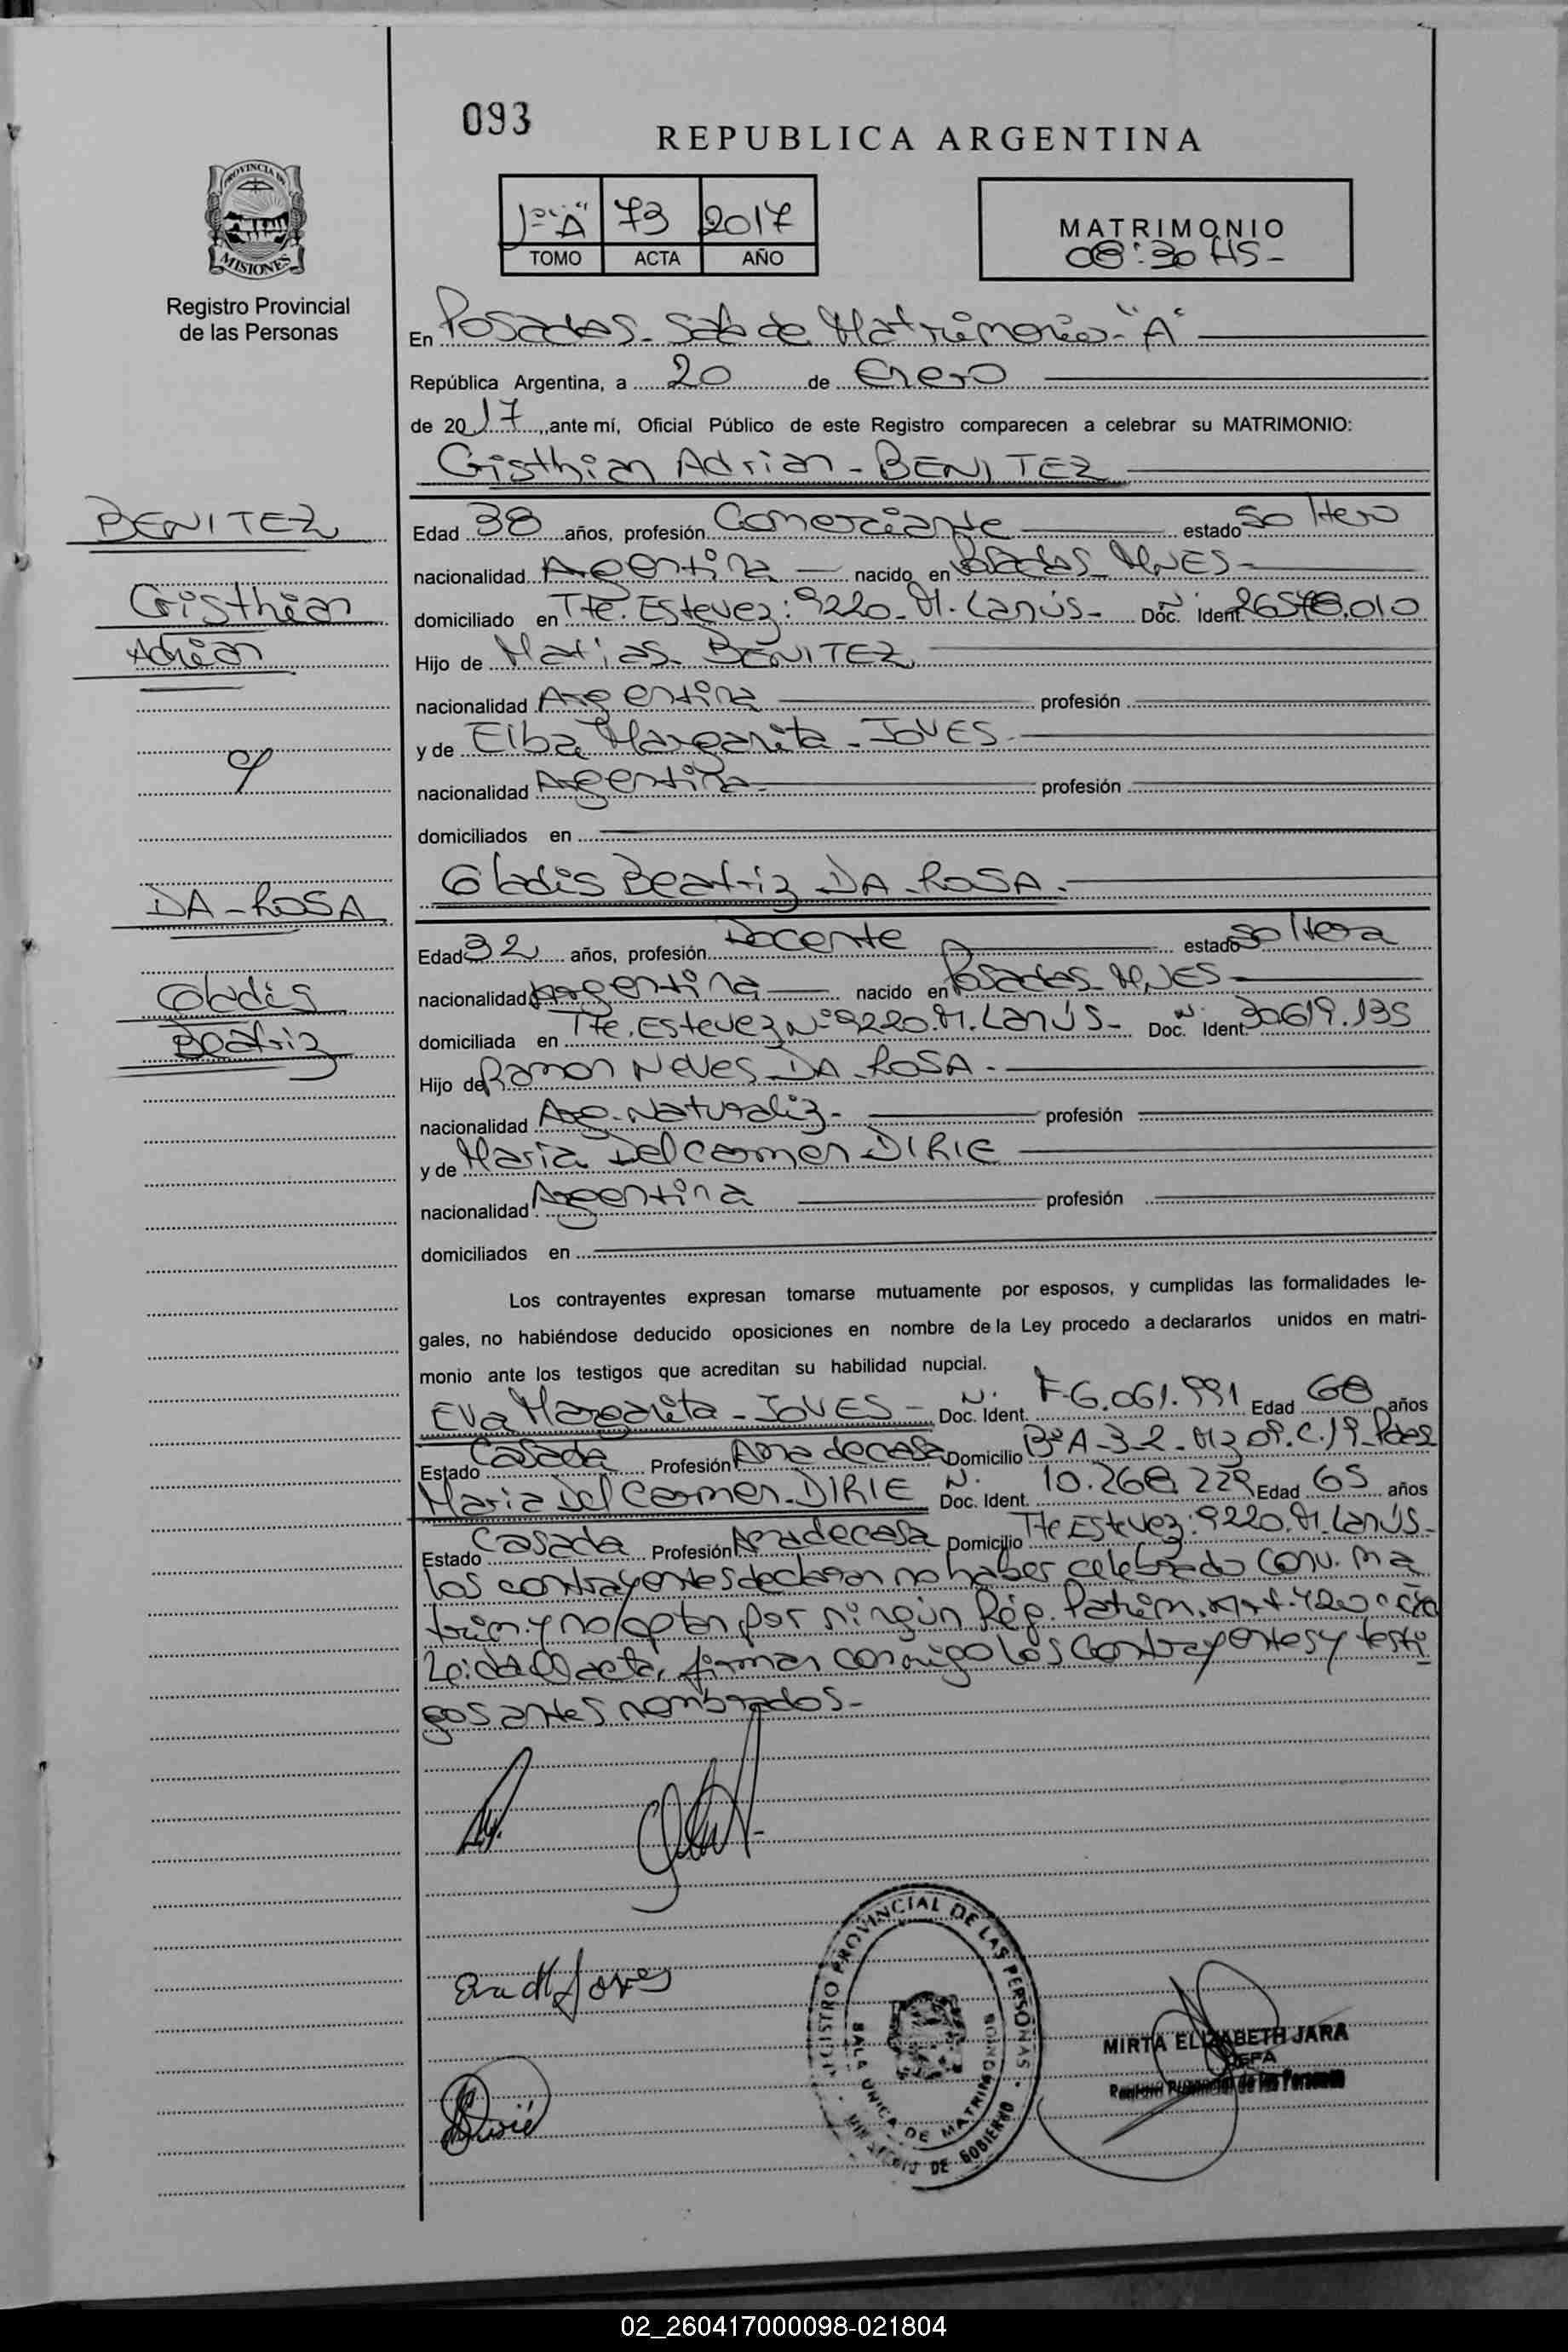 093
REPUBLICA ARGENTINA
PROVINCIA DE
MISIONES
Registro Provincial
de las Personas
1º "A" 73 2017
TOMO ACTA AÑO
MATRIMONIO
08:30 HS-
En Posadas- Sala de Matrimonio-"A"
República Argentina, a 20 de Enero
de 2017, ante mí, Oficial Público de este Registro comparecen a celebrar su MATRIMONIO:
Cristhian Adrian - BENITEZ
BENITEZ
Cristhian
Adrian
Edad 38 años, profesión Comerciante estado Soltero
nacionalidad Argentina nacido en Posadas Mnes-
domiciliado en Tte. Estevez: 9220- M. Lanús- Doc. Ident. N. 26578.010
Hijo de Matias BENITEZ
nacionalidad Argentina profesión
y de Elba Margarita - JOVES-
nacionalidad Argentina- profesión
domiciliados en
y
Gladis Beatriz DA ROSA.
DA-ROSA
Gladis
Beatriz
Edad 32 años, profesión Docente estado Soltera
nacionalidad Argentina nacido en Posadas Mnes-
domiciliada en Tte. Estevez Nº 9220. M. Lanús- Doc. Ident. N. 30619.135
Hijo de Ramon Neves DA ROSA-
nacionalidad Arg. Naturaliz- profesión
y de Maria Del Carmen DIRIE
nacionalidad Argentina profesión
domiciliados en
Los contrayentes expresan tomarse mutuamente por esposos, y cumplidas las formalidades le-
gales, no habiéndose deducido oposiciones en nombre de la Ley procedo a declararlos unidos en matri-
monio ante los testigos que acreditan su habilidad nupcial.
Eva Margarita - JOVES - Doc. Ident. N. F-6.061.991 Edad 68 años
Estado Casada Profesión Ama de casa Domicilio Bº A-3-2- Mz 09. C.19- Pdas
Maria Del Carmen. DIRIE Doc. Ident. N. 10.268.229 Edad 65 años
Estado Casada Profesión Ama de casa Domicilio Tte Estevez: 9220. M. Lanús-
los contrayentes declaran no haber celebrado conv. ma
trim. y no optan por ningún Rég. Patrim. Art. 420
Leida el acta, firman conmigo los contrayentes y testi
gos antes nombrados-
Eva M Joves
Dirié
REGISTRO PROVINCIAL DE LAS PERSONAS
SALA UNICA DE MATRIMONIOS
MINISTERIO DE GOBIERNO
MIRTA ELIZABETH JARA
JEFA
Registro Provincial de las Personas
02_260417000098-021804